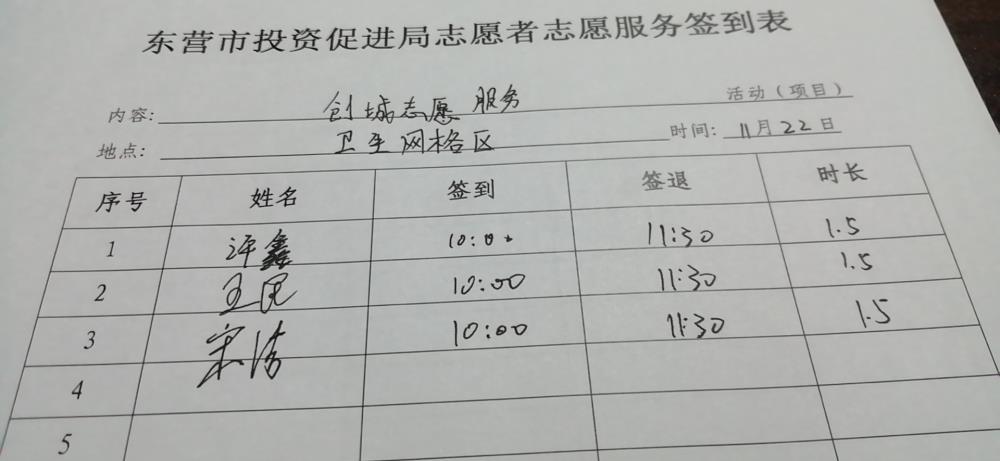 东营市投资促进局志愿者志愿服务签到表
内容: 创城志愿服务 活动（项目）
地点: 卫生网格区 时间: 11月22日
序号 姓名 签到 签退 时长
1 许鑫 10:00 11:30 1.5
2 王民 10:00 11:30 1.5
3 宋 10:00 11:30 1.5
4
5